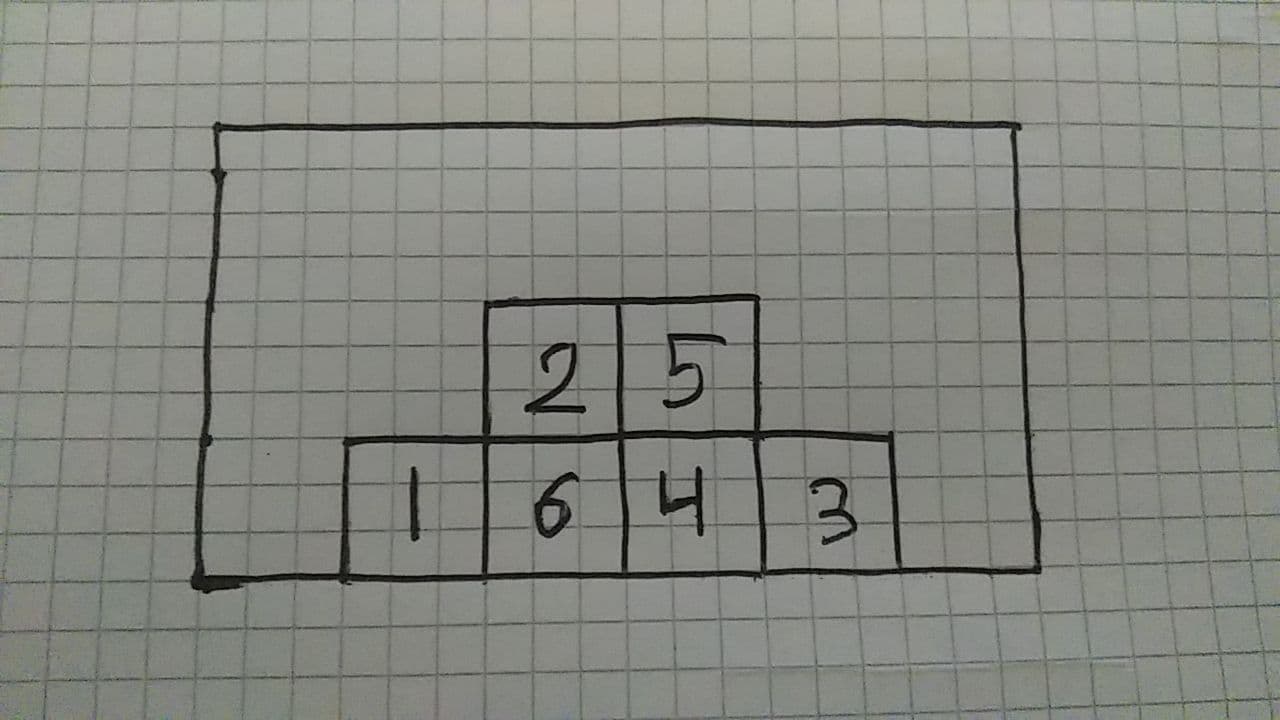 2 5
1 6 4 3